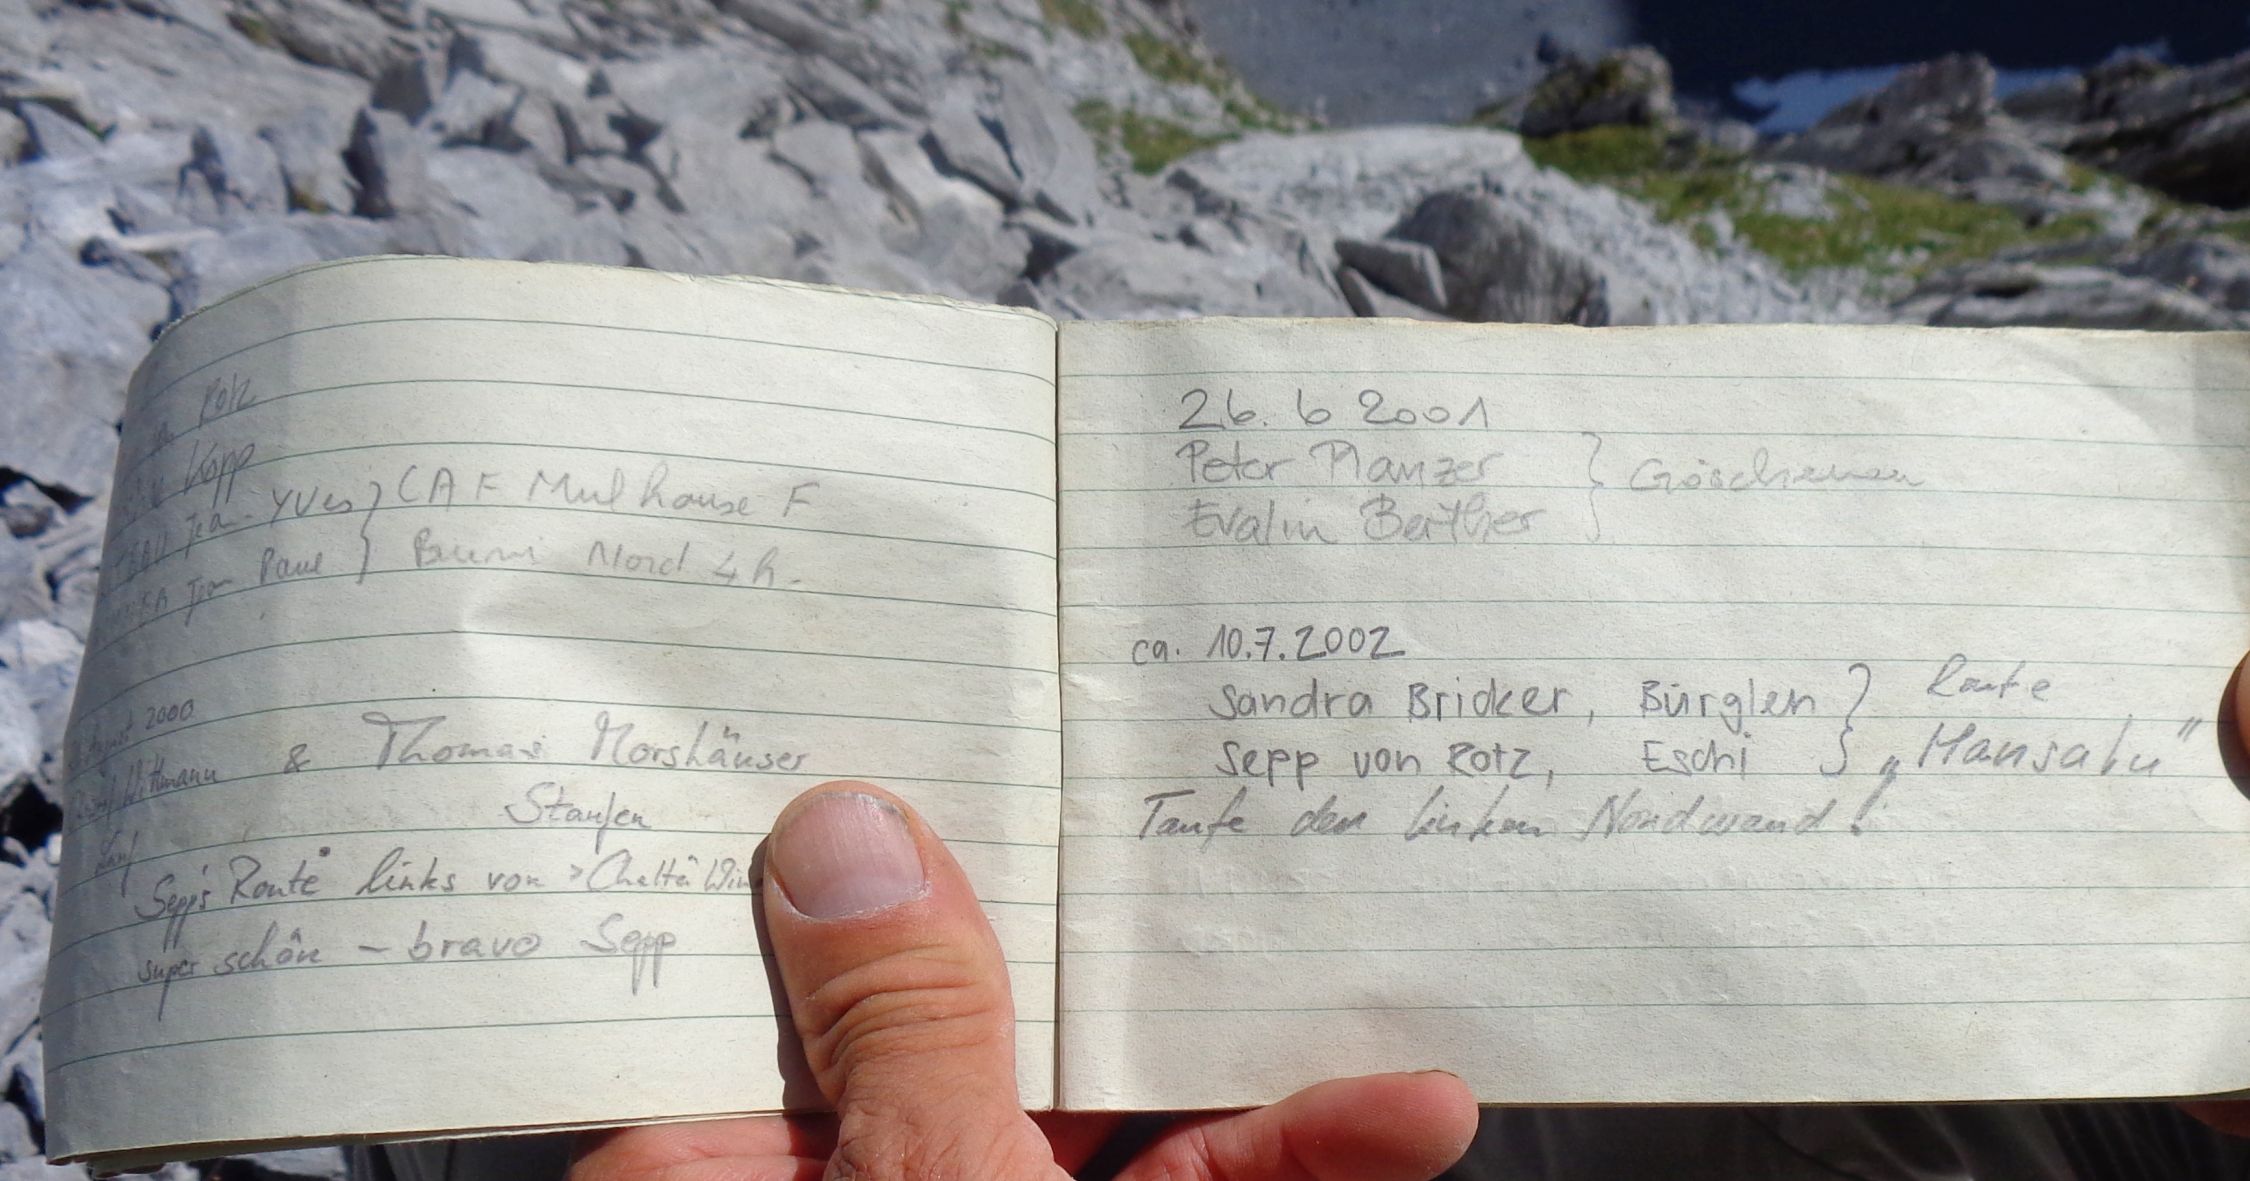 Rotz
Kopp
Jean-Yves } CAF Mulhouse F
Jean Paul } Nord 4h.
August 2000
Wittmann & Thomas Morshäuser
Staufen
Sepp's Route links von >Chaltä Win
super schön - bravo Sepp
26. 6 2001
Peter Planzer } Göschenen
Evalin Berther
ca. 10.7.2002
Sandra Bricker, Bürglen } Route
Sepp von Rotz, Eschi } „Mansalu"
Taufe der linken Nordwand!